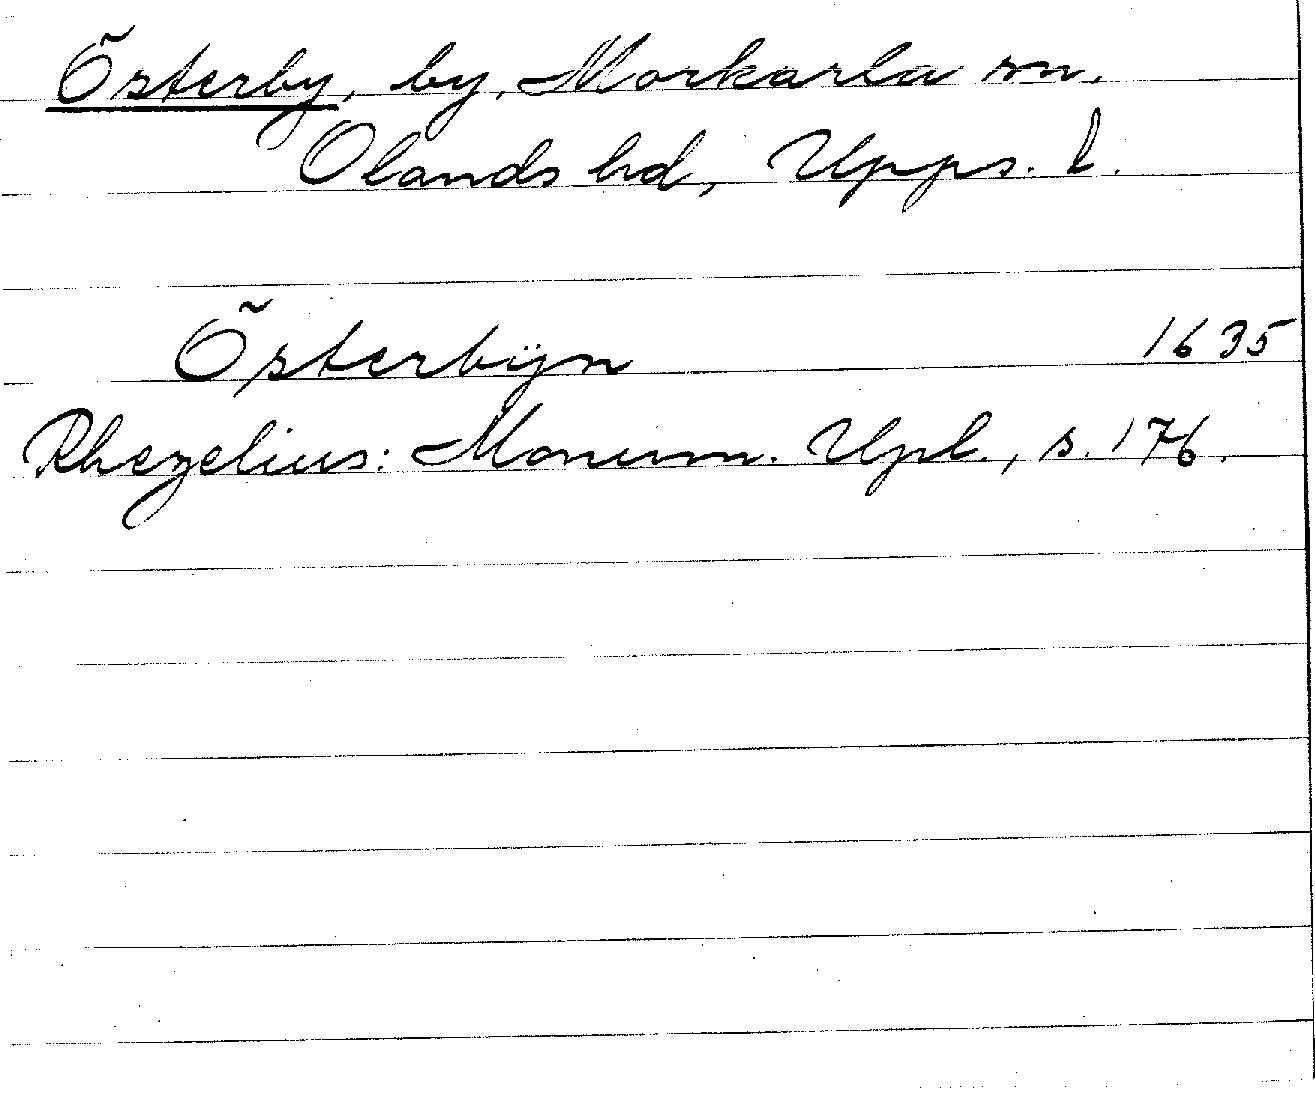 Österby, by, Morkarla sn.
Olands hd, Upps. l.
Österbÿn 1635
Rhezelius: Monum. Upl., s. 176.